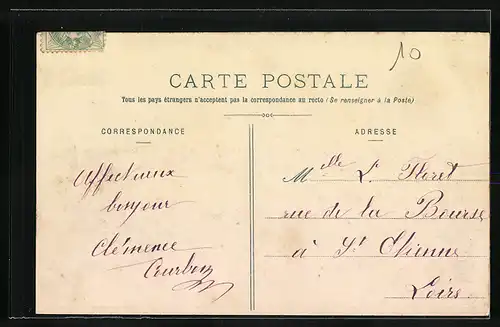 10
CARTE POSTALE
Tous les pays étrangers n'acceptent pas la correspondance au recto (Se renseigner à la Poste)
CORRESPONDANCE
ADRESSE
Affectueux
bonjour
Clémence
Melle L.
rue de la Bourse
à St Etienne
Loire